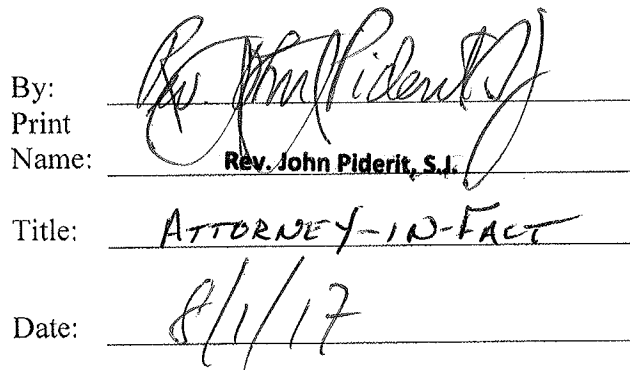 By: Rev. John Piderit SJ
Print
Name: Rev. John Piderit, S.J.
Title: ATTORNEY-IN-FACT
Date: 8/1/17